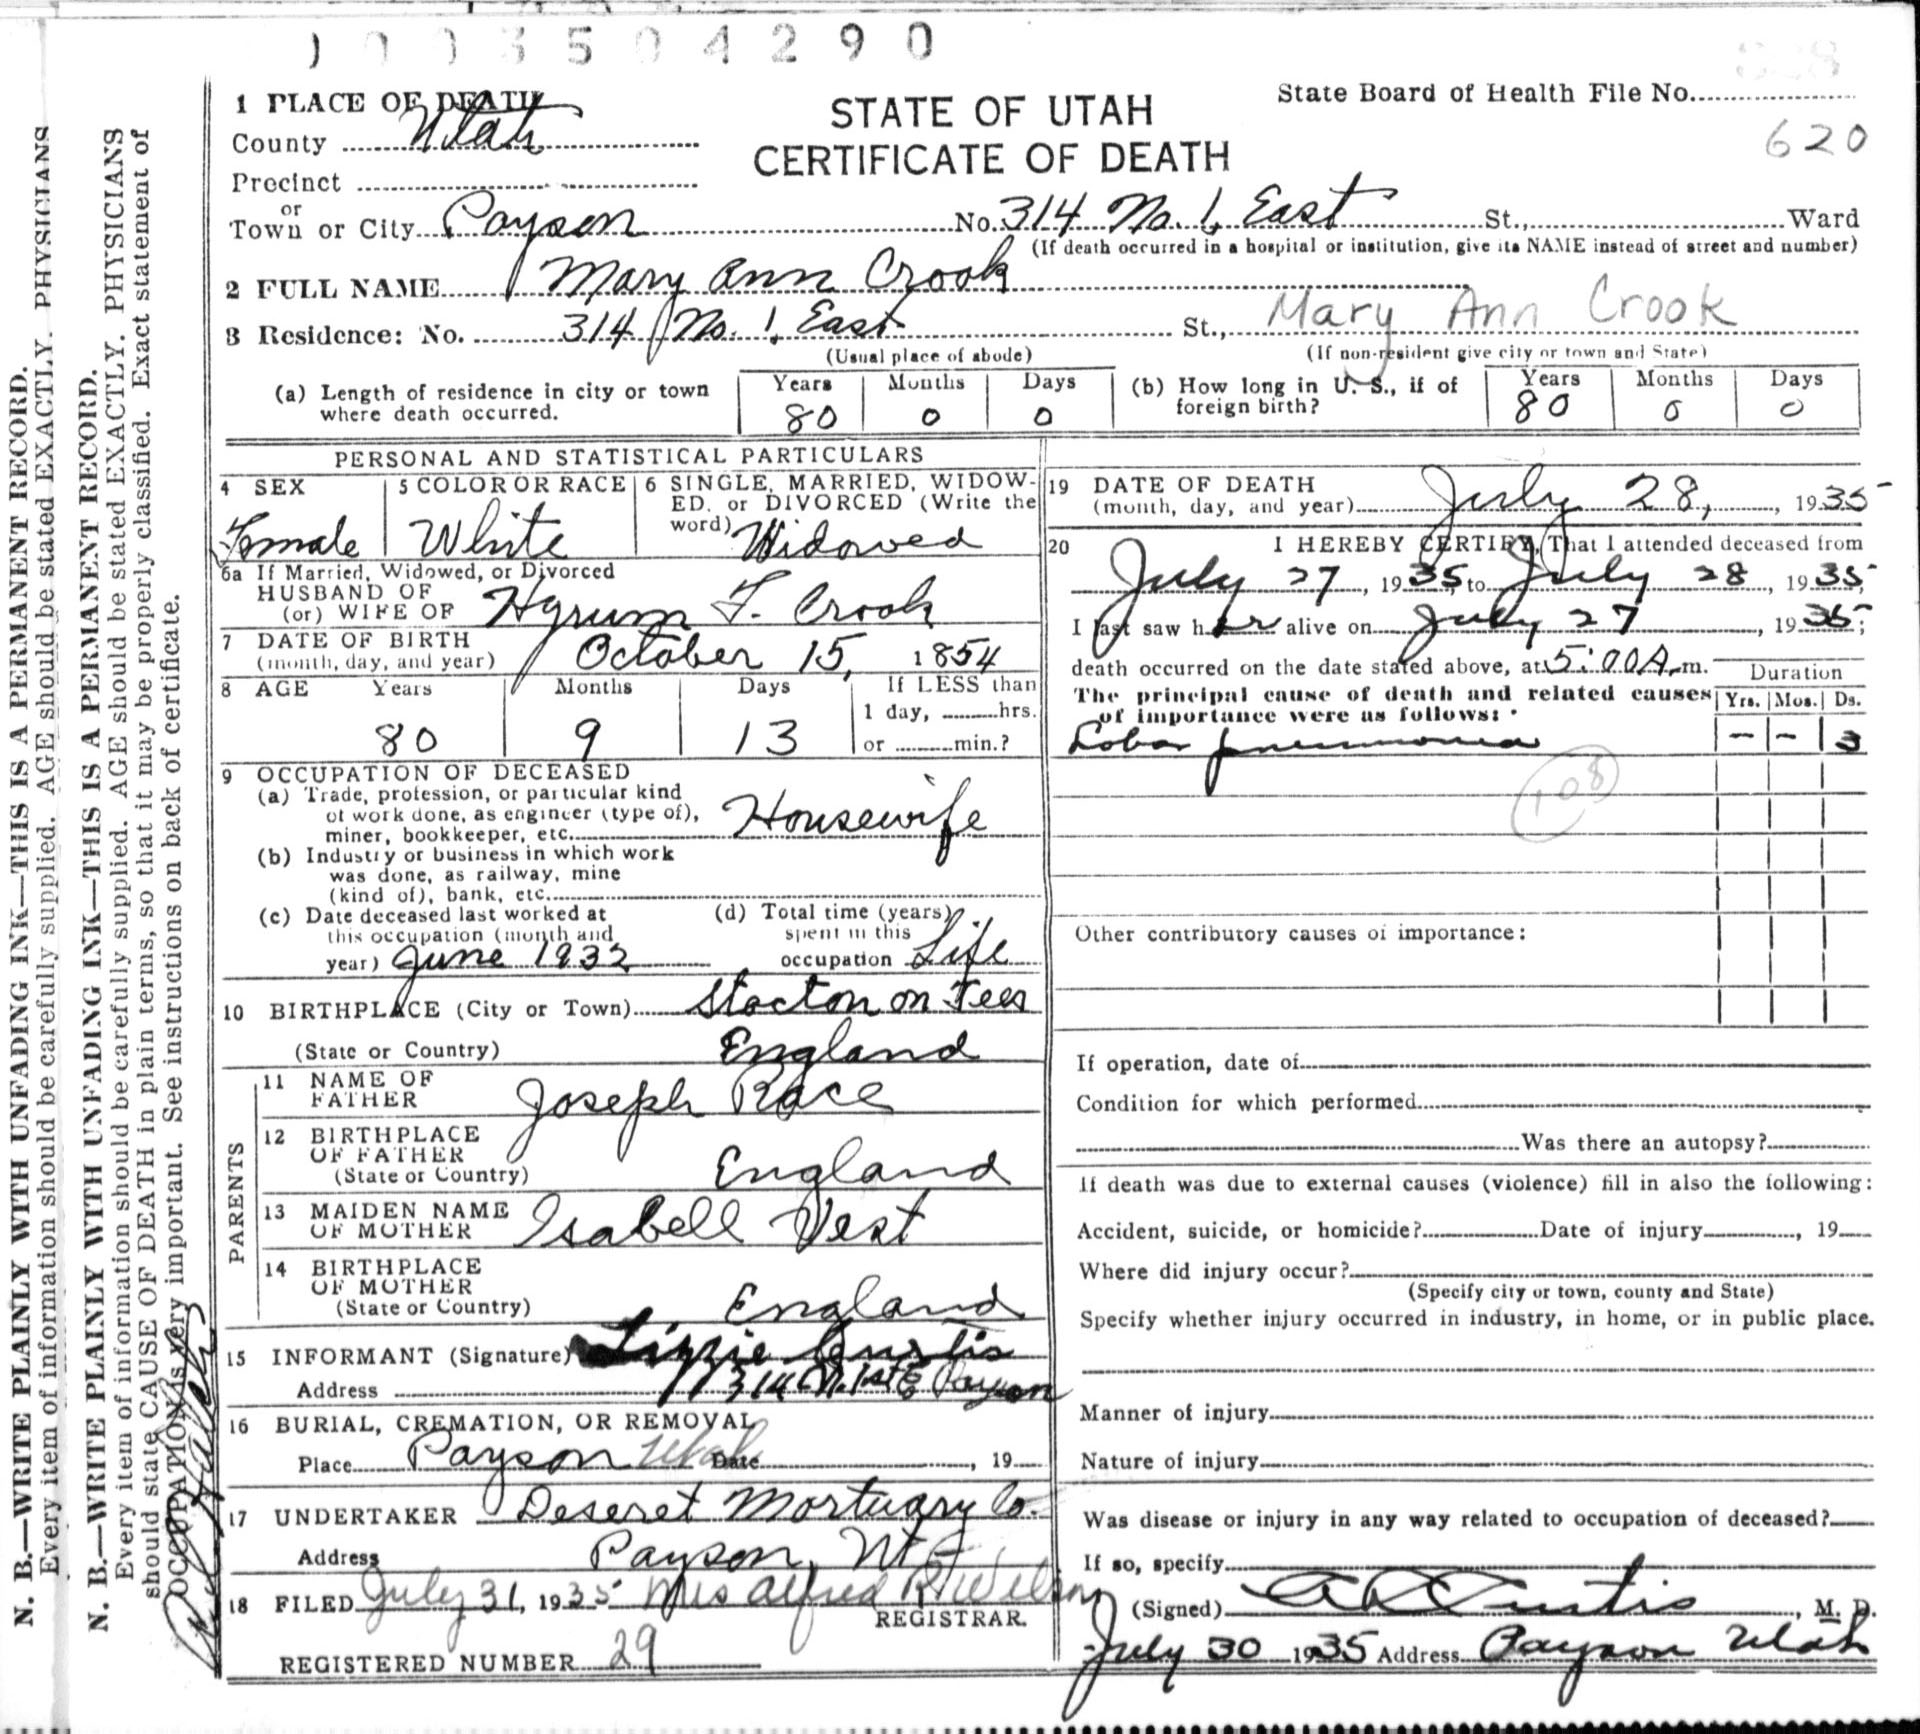 1003504290
828
1 PLACE OF DEATH
STATE OF UTAH
CERTIFICATE OF DEATH
State Board of Health File No.
620
County Utah
Precinct
or
Town or City Payson No. 314 No. 1, East St., Ward
(If death occurred in a hospital or institution, give its NAME instead of street and number)
2 FULL NAME Mary Ann Crook
3 Residence: No. 314 No. 1, East St., Mary Ann Crook
(Usual place of abode) (If non-resident give city or town and State)
(a) Length of residence in city or town where death occurred. Years 80 Months 0 Days 0
(b) How long in U. S., if of foreign birth? Years 80 Months 0 Days 0
PERSONAL AND STATISTICAL PARTICULARS
4 SEX Female
5 COLOR OR RACE White
6 SINGLE, MARRIED, WIDOWED, or DIVORCED (Write the word) Widowed
6a If Married, Widowed, or Divorced
HUSBAND OF
(or) WIFE OF Hyrum F. Crook
7 DATE OF BIRTH
(month, day, and year) October 15, 1854
8 AGE Years 80 Months 9 Days 13 If LESS than
1 day, hrs.
or min.?
9 OCCUPATION OF DECEASED
(a) Trade, profession, or particular kind
of work done, as engineer (type of),
miner, bookkeeper, etc. Housewife
(b) Industry or business in which work
was done, as railway, mine
(kind of), bank, etc.
(c) Date deceased last worked at
this occupation (month and
year) June 1932
(d) Total time (years)
spent in this
occupation Life
10 BIRTHPLACE (City or Town) Stocton on Tees
(State or Country) England
PARENTS
11 NAME OF
FATHER Joseph Race
12 BIRTHPLACE
OF FATHER
(State or Country) England
13 MAIDEN NAME
OF MOTHER Isabell Vest
14 BIRTHPLACE
OF MOTHER
(State or Country) England
15 INFORMANT (Signature) Lizzie Curtis
Address 314 N. 1st E Payson
16 BURIAL, CREMATION, OR REMOVAL
Place Payson Utah Date , 19
17 UNDERTAKER Deseret Mortuary Co.
Address Payson, Ut
18 FILED July 31, 1935 Mrs Alfred R Wilson
REGISTRAR.
REGISTERED NUMBER 29
19 DATE OF DEATH
(month, day, and year) July 28, , 1935
20 I HEREBY CERTIFY, That I attended deceased from
July 27 , 1935, to July 28 , 1935;
I last saw her alive on July 27 , 1935;
death occurred on the date stated above, at 5:00 A. m.
Duration
The principal cause of death and related causes
of importance were as follows:
Yrs. Mos. Ds.
Lobar pneumonia - - 3
108
Other contributory causes of importance:
If operation, date of
Condition for which performed
Was there an autopsy?
If death was due to external causes (violence) fill in also the following:
Accident, suicide, or homicide? Date of injury , 19
Where did injury occur?
(Specify city or town, county and State)
Specify whether injury occurred in industry, in home, or in public place.
Manner of injury
Nature of injury
Was disease or injury in any way related to occupation of deceased?
If so, specify
(Signed) A R Curtis , M. D.
July 30 1935 Address Payson Utah
N. B.—WRITE PLAINLY WITH UNFADING INK—THIS IS A PERMANENT RECORD.
Every item of information should be carefully supplied. AGE should be stated EXACTLY. PHYSICIANS
N. B.—WRITE PLAINLY WITH UNFADING INK—THIS IS A PERMANENT RECORD.
Every item of information should be carefully supplied. AGE should be stated EXACTLY. PHYSICIANS
should state CAUSE OF DEATH in plain terms, so that it may be properly classified. Exact statement of
OCCUPATION is very important. See instructions on back of certificate.